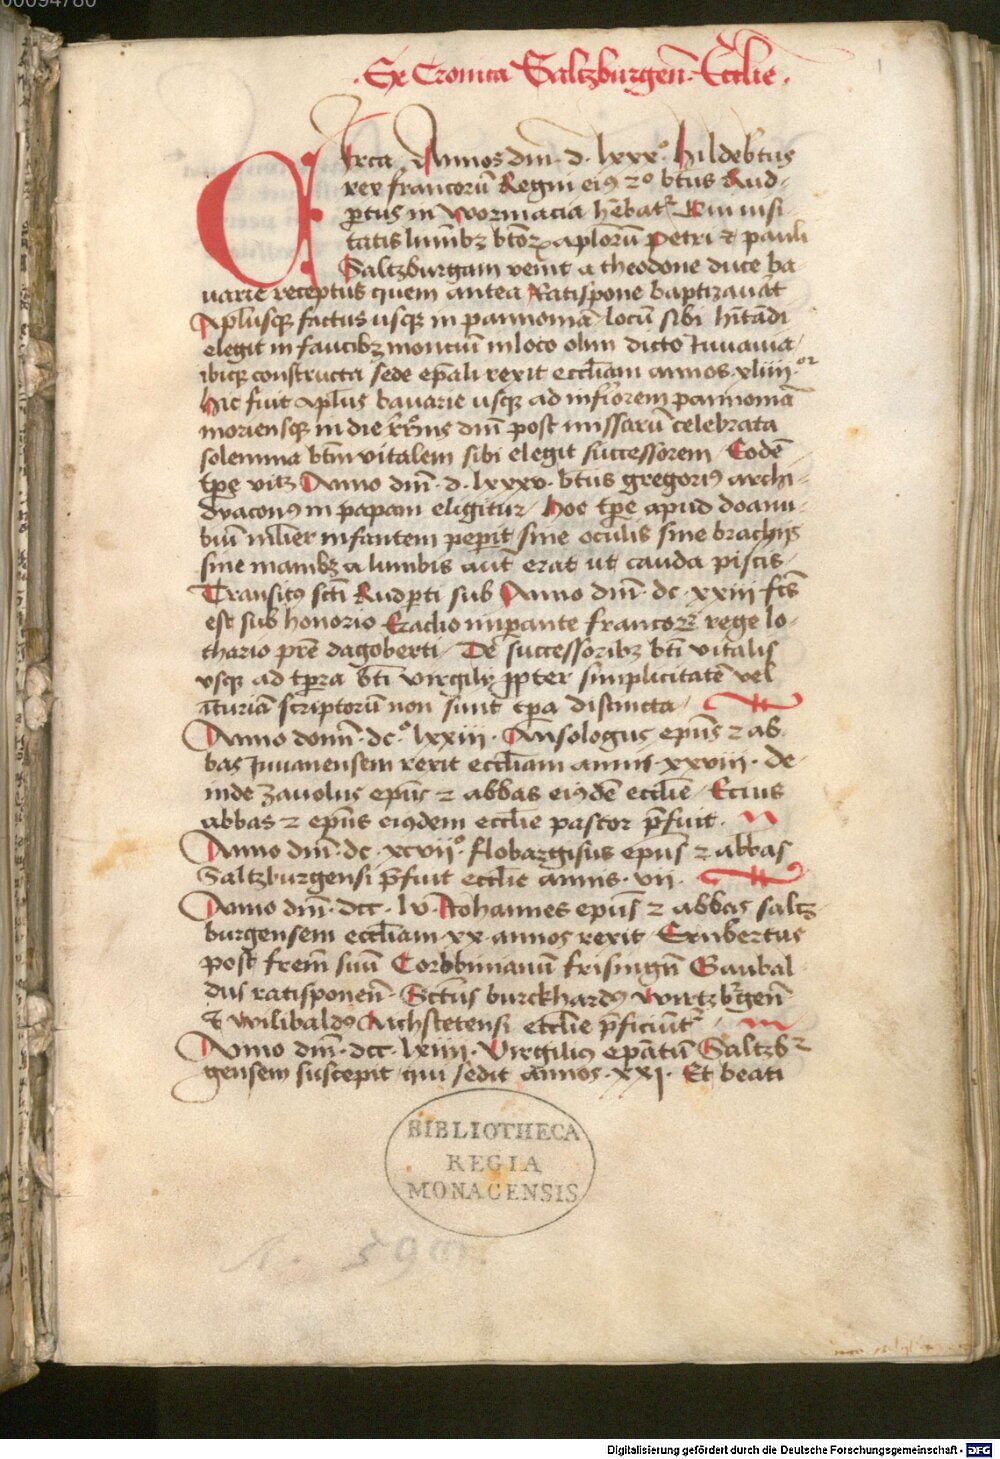 00094780
1
Ex Cronica Saltzburgen̄. Ecclīe.
Circa Annos dm̄. d. lxxx.º hildeb̄tus
rex francorū Regni eiꝰ 2º bt̄us Rud-
ꝑtus in wormacia hēbat᷑ Qui
tatis bt̄oꝝ aplorū petri et pauli
Saltzburgam venit a theodone duce ba-
uarie receptus quem antea Ratispone baptizau̅at
Aplusqꝫ factus usqꝫ in pannoniā locū sibi hītādi
elegit in faucibꝫ monciū in loco olim dicto Iuuauia
ibiqꝫ constructa sede ep̄ali rexit eccl̄iam annos xliiii.or
hic fuit Aplus bauarie usqꝫ ad inf̄iorem pannoniā
moriensqꝫ in die dm̄ post missarū celebrata
solemnia bt̄m vitalem sibi elegit successorem Eodē
tp̄e Anno dm̄. d. lxxxv. bt̄us gregoriꝰ archi-
dyaconꝰ in papam eligitur hoc tp̄e apud doanu-
biū ml̄ier infantem peperit sine oculis sine brachijs
sine manibꝫ a lumbis aūt erat ut cauda piscis
Transitꝰ sct̄i Rudꝑti sub Anno dm̄. dc. xxiii fc̄s
est sub honorio Eraclio imꝑante francoꝝ rege lo-
thario prē dagoberti. De successoribꝫ bt̄i vitalis
vsqꝫ ad tꝑa bt̄i virgilij ꝓpter simplicitatē vel
īcuriā scriptorū non sunt tꝑa distincta
Anno domī. dc.º lxxiii. Ansologus ep̄us 2 ab-
bas Iuuauensem rexit eccl̄iam annis xxviii. de-
inde Zauolus ep̄us 2 abbas eiꝰdē eccl̄ie Ecius
abbas 2 ep̄us eiꝰdem eccl̄ie pastor p̄fuit.
Anno dm̄. dc. xcvii.º flobargisus ep̄us 2 abbas
Saltzburgensi p̄fuit eccl̄ie annis. vii.
Anno dm̄. dcc. lv. Iohannes ep̄us 2 abbas saltz-
burgensem eccl̄iam xx annos rexit Erubertus
post frēm suū Corbbinianū frisingn̄ Gaubal-
dus ratisponen̄. Sct̄us burckhardꝰ wirtzb̄gen̄
et wilibaldꝰ Aichstetensi eccl̄ie p̄ficiūt᷑
Anno dm̄. dcc. lxiiii. Virgiliꝰ ep̄atū Saltzb2-
gensem suscepit qui sedit annos. xxi. Et beati
BIBLIOTHECA
REGIA
MONACENSIS
Digitalisierung gefördert durch die Deutsche Forschungsgemeinschaft - DFG